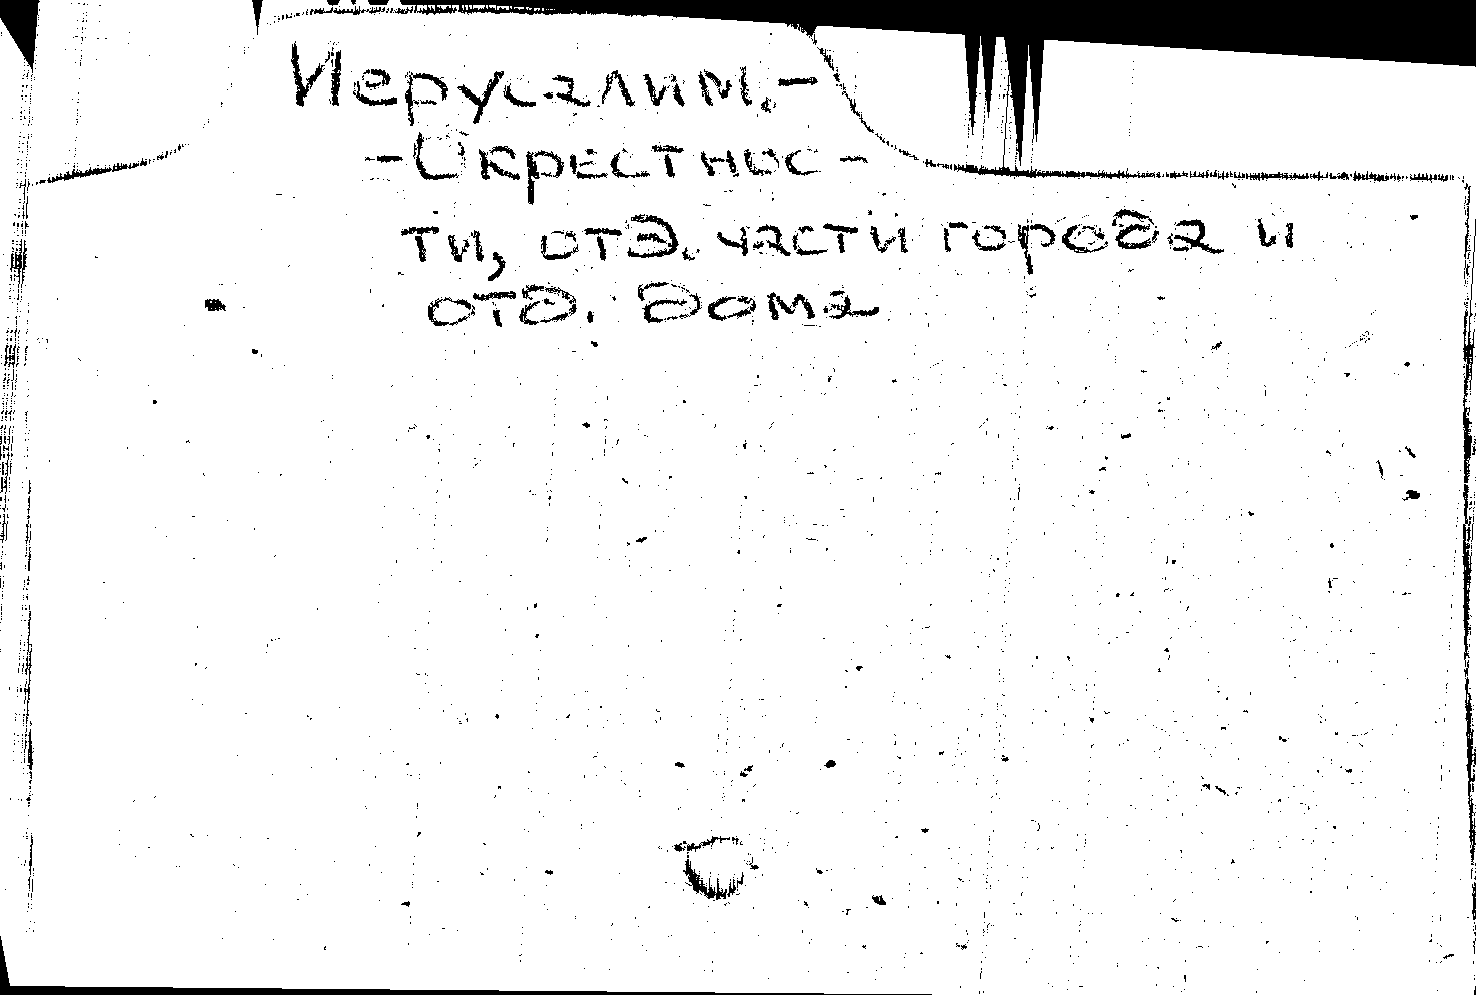 Иерусалим.-
-Окрестнос-
ти, отд. части города и
отд. дома